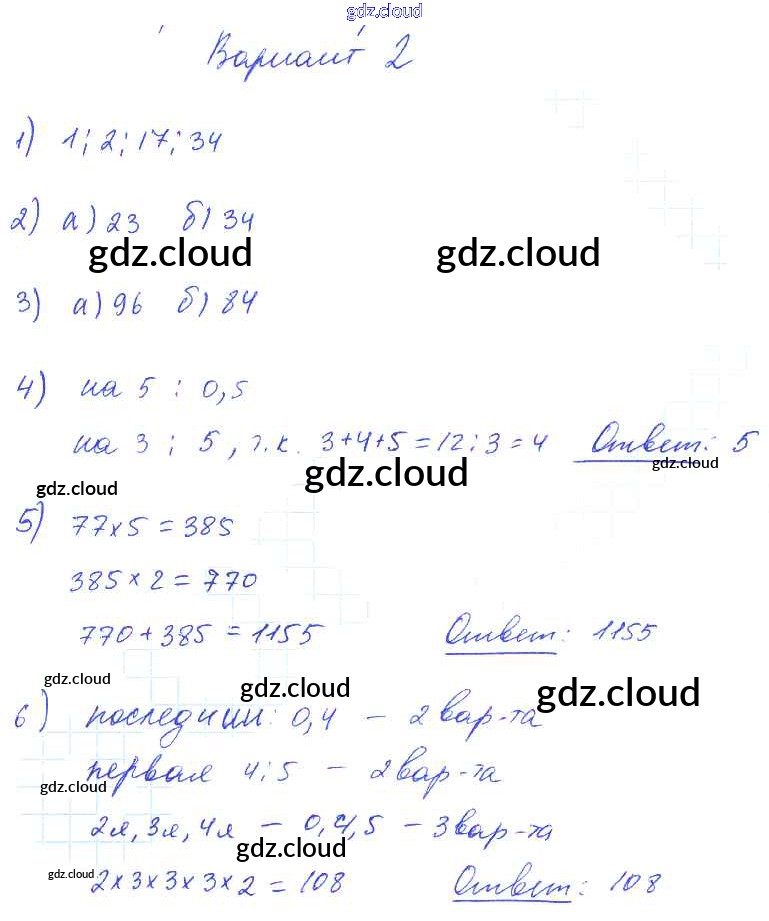 gdz.cloud
Вариант 2
1) 1; 2; 17; 34
2) а) 23 б) 34
gdz.cloud gdz.cloud
3) а) 96 б) 84
4) на 5 : 0,5
на 3 ; 5, т.к. 3+4+5=12:3=4 Ответ: 5
gdz.cloud
gdz.cloud
gdz.cloud
5) 77×5=385
385×2=770
770+385=1155 Ответ: 1155
gdz.cloud
gdz.cloud
gdz.cloud
6) последний: 0,4 – 2 вар-та
первая 4;5 – 2 вар-та
gdz.cloud
2я, 3я, 4я – 0,4,5 – 3 вар-та
gdz.cloud
gdz.cloud
2×3×3×3×2=108 Ответ: 108